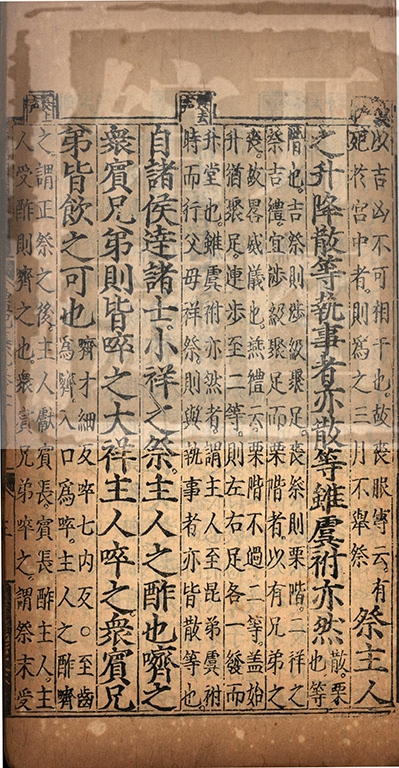 以吉凶不可相干也。故喪服傳云。有
死於宮中者。則爲之三月不舉祭
祭主人
之升降散等執事者亦散等雖虞祔亦然
散。栗
也等
階也。吉祭則涉級聚足。喪祭則栗階。二祥之
祭吉禮。宜涉級聚足而栗階者。以有兄弟之
喪。故畧威儀也。燕禮云。栗階不過二等。蓋始
升猶聚足。連步至二等。則左右足各一發而
升堂也。雖虞祔亦然者。謂主人至昆弟虞祔
時而行父母祥祭。則與執事者亦皆散等也。
自諸侯達諸士。小祥之祭。主人之酢也嚌之
衆賓兄弟則皆啐之大祥主人啐之。衆賓兄
弟皆飲之可也
嚌才細反啐七内反。○至齒
爲嚌。入口爲啐。主人之酢嚌
之。謂正祭之後。主人獻賓長。賓長酢主人。主
人受酢則嚌之也。衆賓兄弟啐之。謂祭末受